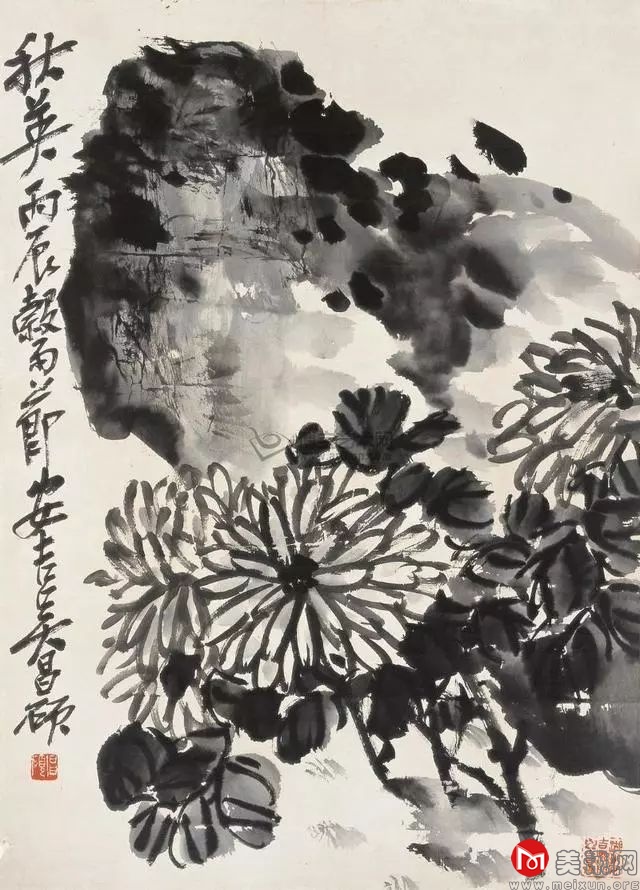 秋英 丙辰穀雨節 安吉吳昌碩
美讯网
www.meixun.org